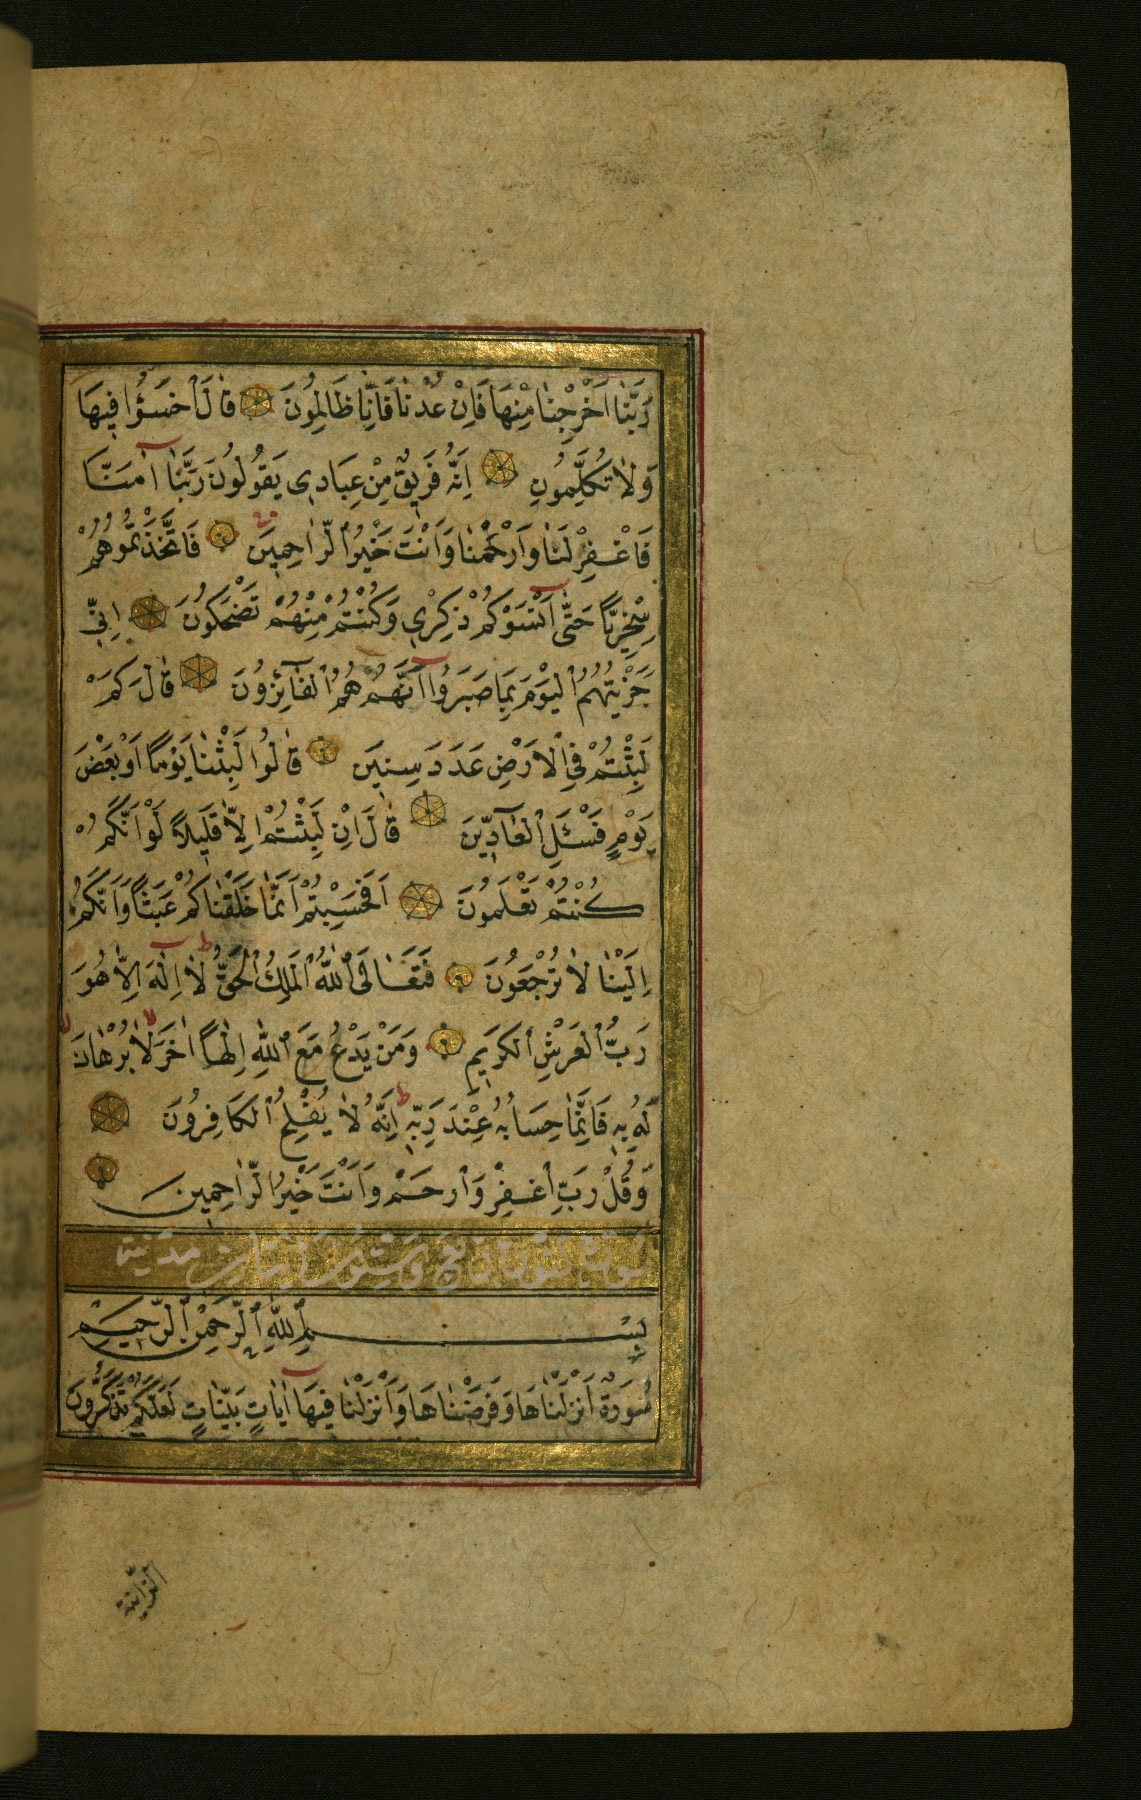 رَبَّنَا اَخْرِجْنَا مِنْهَا فَاِنْ عُدْنَا فَاِنَّا ظَالِمُونَ قَالَ ٱخْسَؤُا فِيهَا
وَلَا تُكَلِّمُونِ اِنَّهُ فَرِيقٌ مِنْ عِبَادِي يَقُولُونَ رَبَّنَا اٰمَنَّا
فَاغْفِرْ لَنَا وَارْحَمْنَا وَاَنْتَ خَيْرُ ٱلرَّاحِمِينَ فَاتَّخَذْتُمُوهُمْ
سِخْرِيًّا حَتّٰى اَنْسَوْكُمْ ذِكْرِي وَكُنْتُمْ مِنْهُمْ تَضْحَكُونَ اِنِّي
جَزَيْتُهُمُ ٱلْيَوْمَ بِمَا صَبَرُوا اَنَّهُمْ هُمُ ٱلْفَآئِزُونَ قَالَ كَمْ
لَبِثْتُمْ فِي ٱلْاَرْضِ عَدَدَ سِنِينَ قَالُوا لَبِثْنَا يَوْمًا اَوْ بَعْضَ
يَوْمٍ فَسْئَلِ ٱلْعَآدِّينَ قَالَ اِنْ لَبِثْتُمْ اِلَّا قَلِيلًا لَوْ اَنَّكُمْ
كُنْتُمْ تَعْلَمُونَ اَفَحَسِبْتُمْ اَنَّمَا خَلَقْنَاكُمْ عَبَثًا وَاَنَّكُمْ
اِلَيْنَا لَا تُرْجَعُونَ فَتَعَالَى ٱللّٰهُ ٱلْمَلِكُ ٱلْحَقُّ لَا اِلٰهَ اِلَّا هُوَ
رَبُّ ٱلْعَرْشِ ٱلْكَرِيمِ وَمَنْ يَدْعُ مَعَ ٱللّٰهِ اِلٰهًا اٰخَرَ لَا بُرْهَانَ
لَهُ بِهِ فَاِنَّمَا حِسَابُهُ عِنْدَ رَبِّهِ اِنَّهُ لَا يُفْلِحُ ٱلْكَافِرُونَ
وَقُلْ رَبِّ ٱغْفِرْ وَٱرْحَمْ وَاَنْتَ خَيْرُ ٱلرَّاحِمِينَ
بِسْمِ ٱللّٰهِ ٱلرَّحْمٰنِ ٱلرَّحِيمِ
سُورَةٌ اَنْزَلْنَاهَا وَفَرَضْنَاهَا وَاَنْزَلْنَا فِيهَا اٰيَاتٍ بَيِّنَاتٍ لَعَلَّكُمْ تَذَكَّرُونَ
ٱلزَّانِيَة